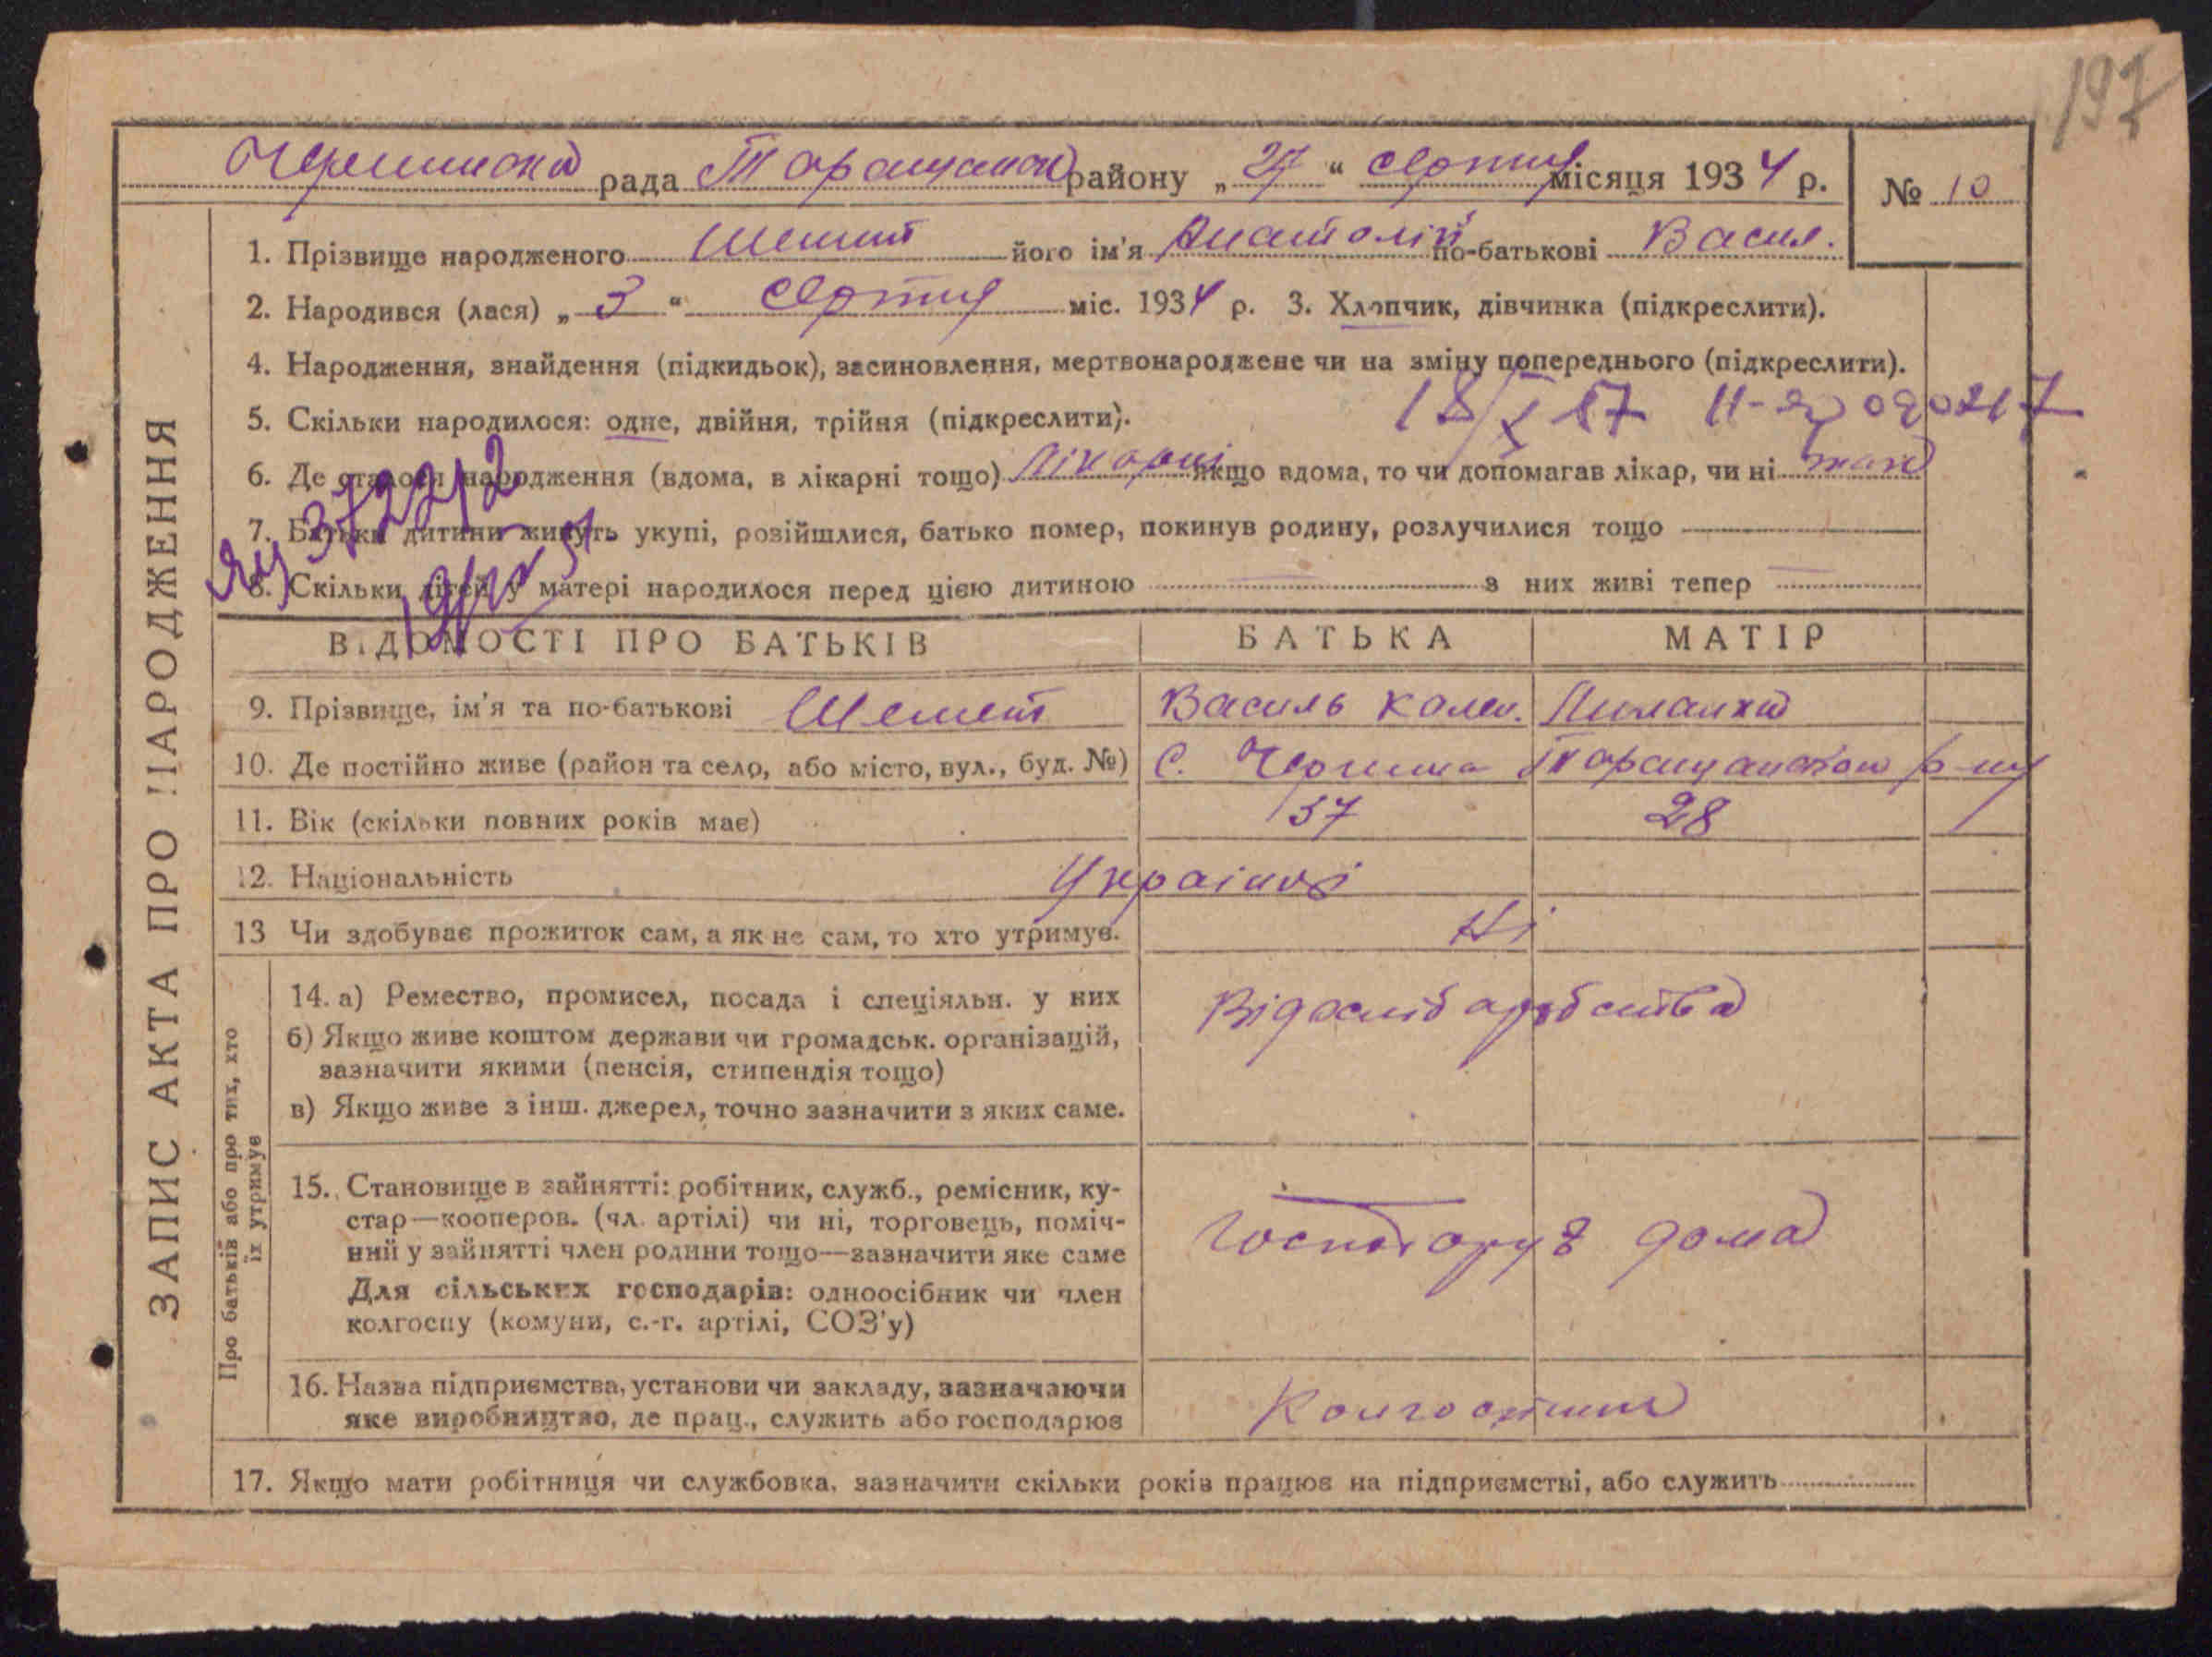 197
рада Таращанськ району „27“ серпня місяця 1934 р. № 10
ЗАПИС АКТА ПРО НАРОДЖЕННЯ
1. Прізвище народженого його ім'я Анатолій по-батькові Васил.
2. Народився (лася) „3“ серпня міс. 1934 р. 3. Хлопчик, дівчинка (підкреслити).
4. Народження, знайдення (підкидьок), засиновлення, мертвонароджене чи на зміну попереднього (підкреслити).
5. Скільки народилося: одне, двійня, трійня (підкреслити).
6. Де сталося народження (вдома, в лікарні тощо) лікарні якщо вдома, то чи допомагав лікар, чи ні
7. Батьки дитини живуть укупі, розійшлися, батько помер, покинув родину, розлучилися тощо
8. Скільки дітей у матері народилося перед цією дитиною з них живі тепер
ВІДОМОСТІ ПРО БАТЬКІВ БАТЬКА МАТІР
9. Прізвище, ім'я та по-батькові Василь
10. Де постійно живе (район та село, або місто, вул., буд. №) С. Таращанськ р-ну
11. Вік (скільки повних років має) 37 28
12. Національність Україн
13 Чи здобуває прожиток сам, а як не сам, то хто утримує. Ні
Про батьків або про тих, хто їх утримує
14. а) Ремество, промисел, посада і спеціяльн. у них
б) Якщо живе коштом держави чи громадськ. організацій,
зазначити якими (пенсія, стипендія тощо)
в) Якщо живе з інш. джерел, точно зазначити з яких саме.
15. Становище в зайнятті: робітник, служб., ремісник, ку-
стар—кооперов. (чл. артілі) чи ні, торговець, поміч-
ний у зайнятті член родини тощо—зазначити яке саме
Для сільських господарів: одноосібник чи член
колгоспу (комуни, с.-г. артілі, СОЗ'у)
дома
16. Назва підприємства, установи чи закладу, зазначаючи
яке виробництво, де прац., служить або господарює
17. Якщо мати робітниця чи службовка, зазначити скільки років працює на підприємстві, або служить